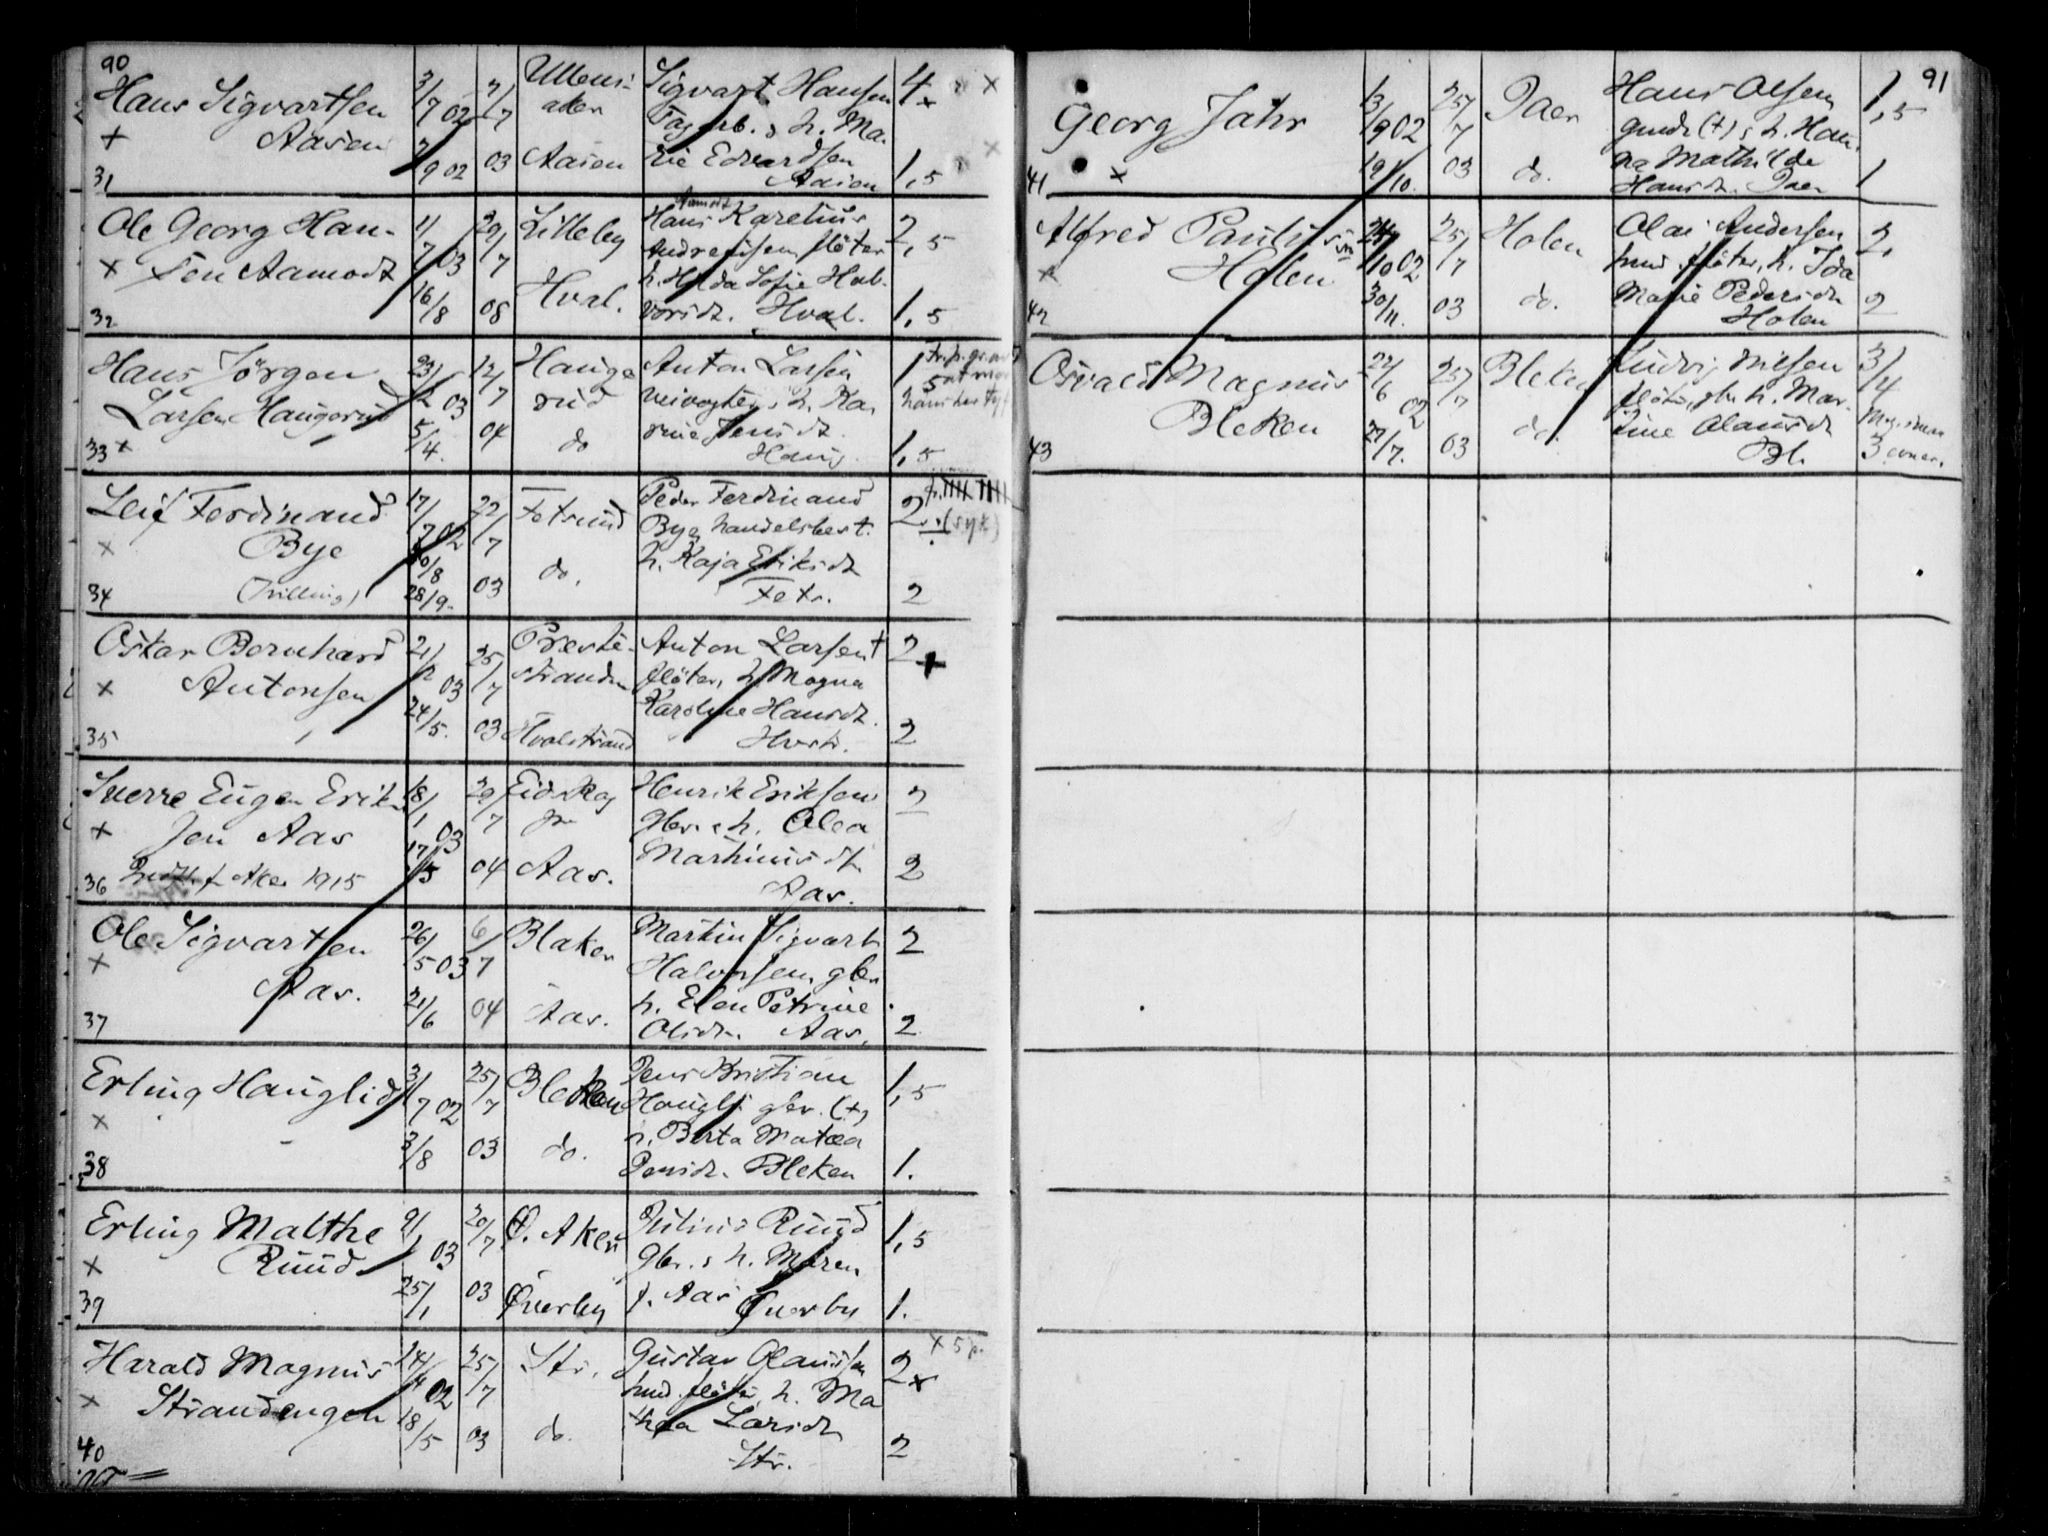 90
Hans Sigvartsen
+ Aasen
31
3/7 02
7/9 02
7/7
03
Ullens-
aker
Aasen
Sigvart Hansen
Fag arb. & h. Ma-
rie Edvardsen
Aasen
4 x
1,5
Ole Georg Han-
x sen Aamodt
32
11/7 03
16/8
29/7
08
Lilleby
Hval.
Aamodt
Hans Karelius
Andreassen fløter
h. Hilda Sofie Hal-
vorsdt. Hval.
2,5
1,5
Hans Jörgen
Larsen Haugerud
33 x
23/2 03
5/4.
12/7
04
Hauge
rud
do
Anton Larsen
h. Ka-
Jensdt.
Haug.
1
1,5
Leif Ferdinand
x Bye
34 (Tvilling)
17/7 02
28/9.
22/7
03
Fetsund
do.
Peder Ferdinand
Bye handelsbest.
h. Kaja Eriksdt
Fets.
2 (syk)
2
Oskar Bernhard
x Antonsen
35
21/2 03
24/5.
25/7
03
Preste-
stranden
Hvalstrand
Anton Larsen +
fløter, h. Magna
Karoline Hansdt.
Hvstr.
2 +
2
Sverre Eugen Erik-
x sen Aas
36 Aker 1915
18/1 03
17/5
29/7
04
Eidskog
Aas.
Henrik Eriksen
gbr. & h. Olea
Martinusdt.
Aas.
2
2
Ole Sigvartsen
x Aas.
37
26/5 03
21/6
6/7
04
Blaker
Aas.
Martin Sigvart
Halvorsen, gbr
h. Elen Petrine
Olsdt. Aas.
2
2
Erling Hauglid
x
38
3/7 02
3/8
25/7
03
Bleken
do.
Jens Kristian
Haugli gbr. (+)
h. Berta Matea
Jensdt. Bleken
1,5
1.
Erling Malthe
x Ruud
39
9/1 03
25/1
20/7
03
Ø. Aker
Øverby
Julius Ruud
gbr. & h. Maren
f. Aas Øverby
1,5
1.
Harald Magnus
x Strandengen
40
14/4 02
18/5
25/7
03
Str.
do.
Gustav Olaussen
hmd. fløter, h. Ma
thea Larsdt
Str.
x 5
2 x
2
91
Georg Jahr
x
41
13/9 02
19/10.
25/7
03
Jaer
do.
Hans Olsen
gmdr (+) & h. Han-
na Mathilde
Hansdt. Jaer
1,5
1
Alfred Paulus
x Holen
42
24/10 02
30/11.
25/7
03
Holen
do.
Olai Andersen
hmd. fløter, h. Ida
Marie Pedersdt
Holen
2.
2
Osvald Magnus
Bleken
43
22/6 02
27/7.
25/7
03
Bleken
do.
Ludvig Nilsen
fløter, gbr h. Mar-
tine Olausdt
Bl.
3/4
3 evner.